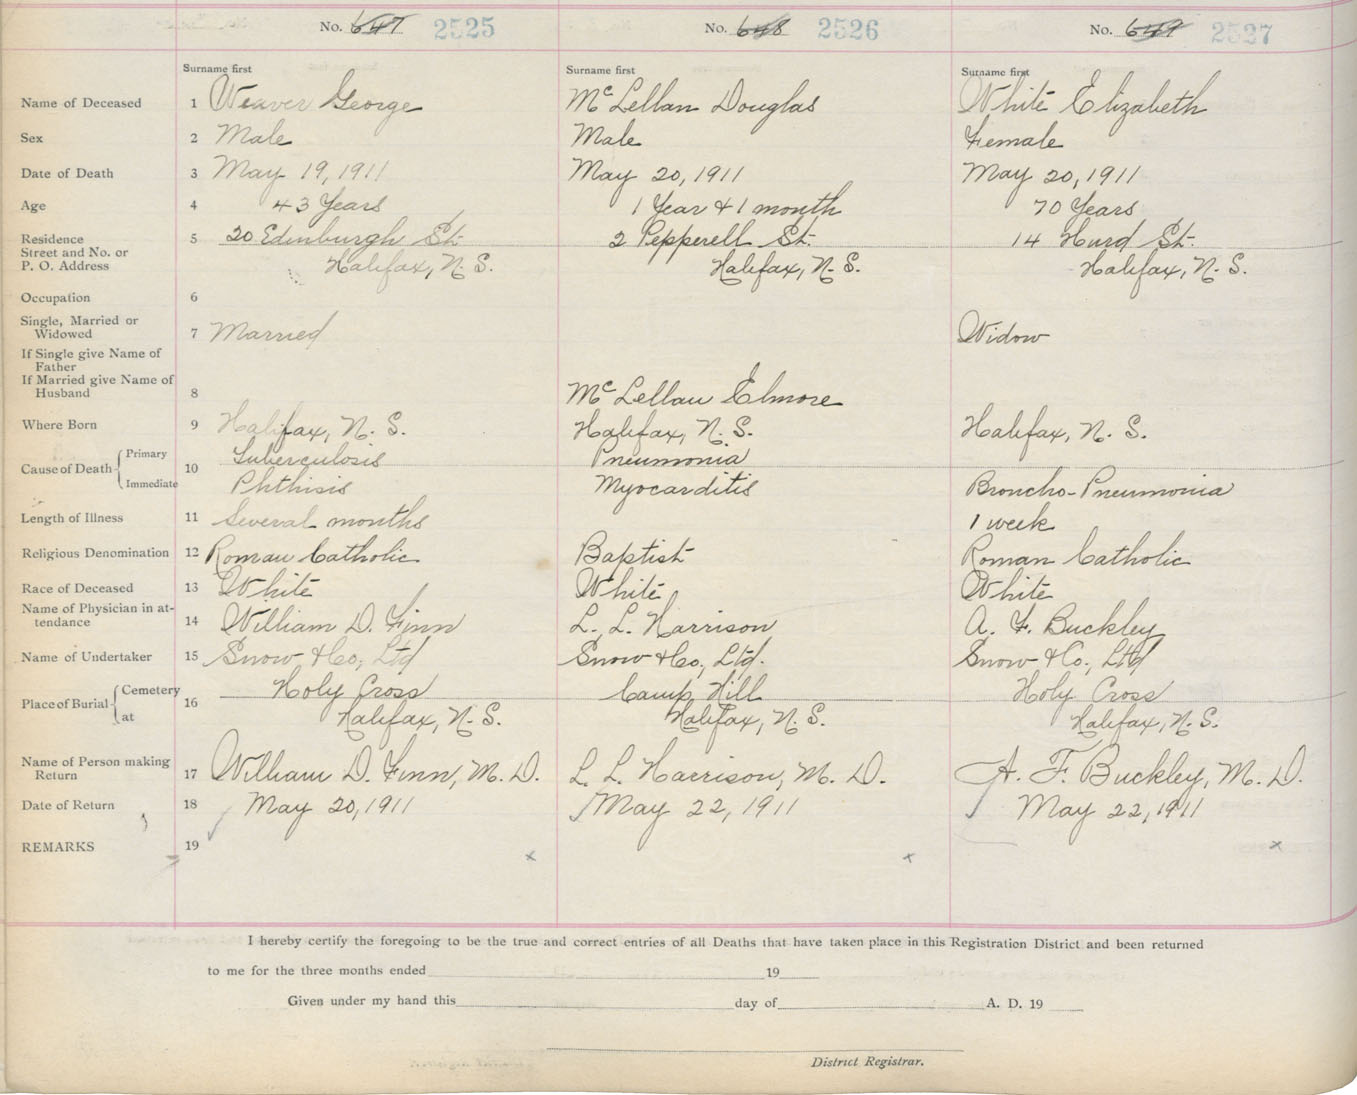 No. 647 2525 No. 648 2526 No. 649 2527
Surname first Surname first Surname first
Name of Deceased 1 Weaver George McLellan Douglas White Elizabeth
Sex 2 Male Male Female
Date of Death 3 May 19, 1911 May 20, 1911 May 20, 1911
Age 4 43 Years 1 Year & 1 month 70 Years
Residence 5 20 Edinburgh St. 2 Pepperell St. 14 Hurd St.
Street and No. or
P. O. Address Halifax, N. S. Halifax, N. S. Halifax, N. S.
Occupation 6
Single, Married or
Widowed 7 Married Widow
If Single give Name of
Father
If Married give Name of
Husband 8 McLellan Elmore
Where Born 9 Halifax, N. S. Halifax, N. S. Halifax, N. S.
Primary Tuberculosis Pneumonia
Cause of Death 10
Immediate Phthisis Myocarditis Broncho-Pneumonia
Length of Illness 11 Several months 1 week
Religious Denomination 12 Roman Catholic Baptist Roman Catholic
Race of Deceased 13 White White White
Name of Physician in at-
tendance 14 William D. Finn L. L. Harrison A. F. Buckley
Name of Undertaker 15 Snow & Co, Ltd Snow & Co, Ltd. Snow & Co, Ltd
Cemetery Holy Cross Camp Hill Holy Cross
Place of Burial 16
at Halifax, N. S. Halifax, N. S. Halifax, N. S.
Name of Person making
Return 17 William D. Finn, M. D. L. L. Harrison, M. D. A. F. Buckley, M. D.
Date of Return 18 May 20, 1911 May 22, 1911 May 22, 1911
REMARKS 19
x x x
I hereby certify the foregoing to be the true and correct entries of all Deaths that have taken place in this Registration District and been returned
to me for the three months ended 19
Given under my hand this day of A. D. 19
District Registrar.